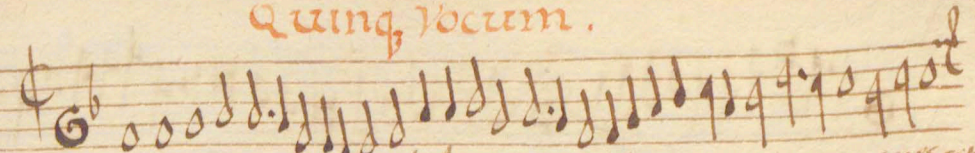 Quinq₃ vocum .